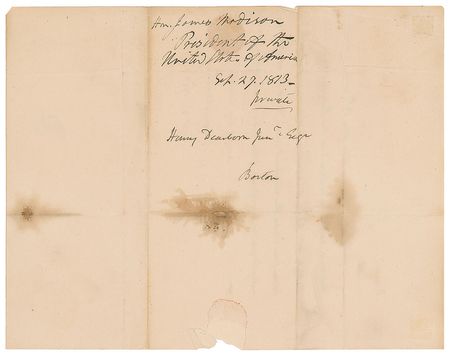 Hon. James Madison
President of the
United States of America
Sep. 27. 1813 –
private
Henry Dearborn Junr. Esqr
Boston